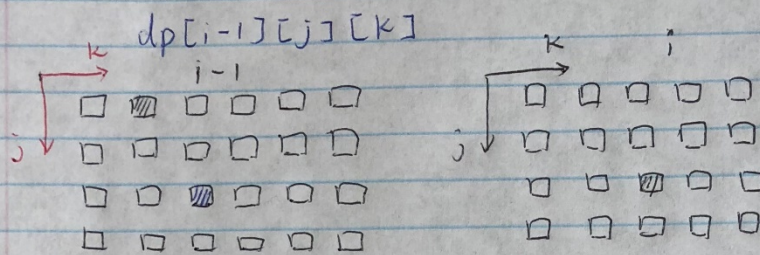 dp[i-1][j][k]
k
i-1
j
k
i
j